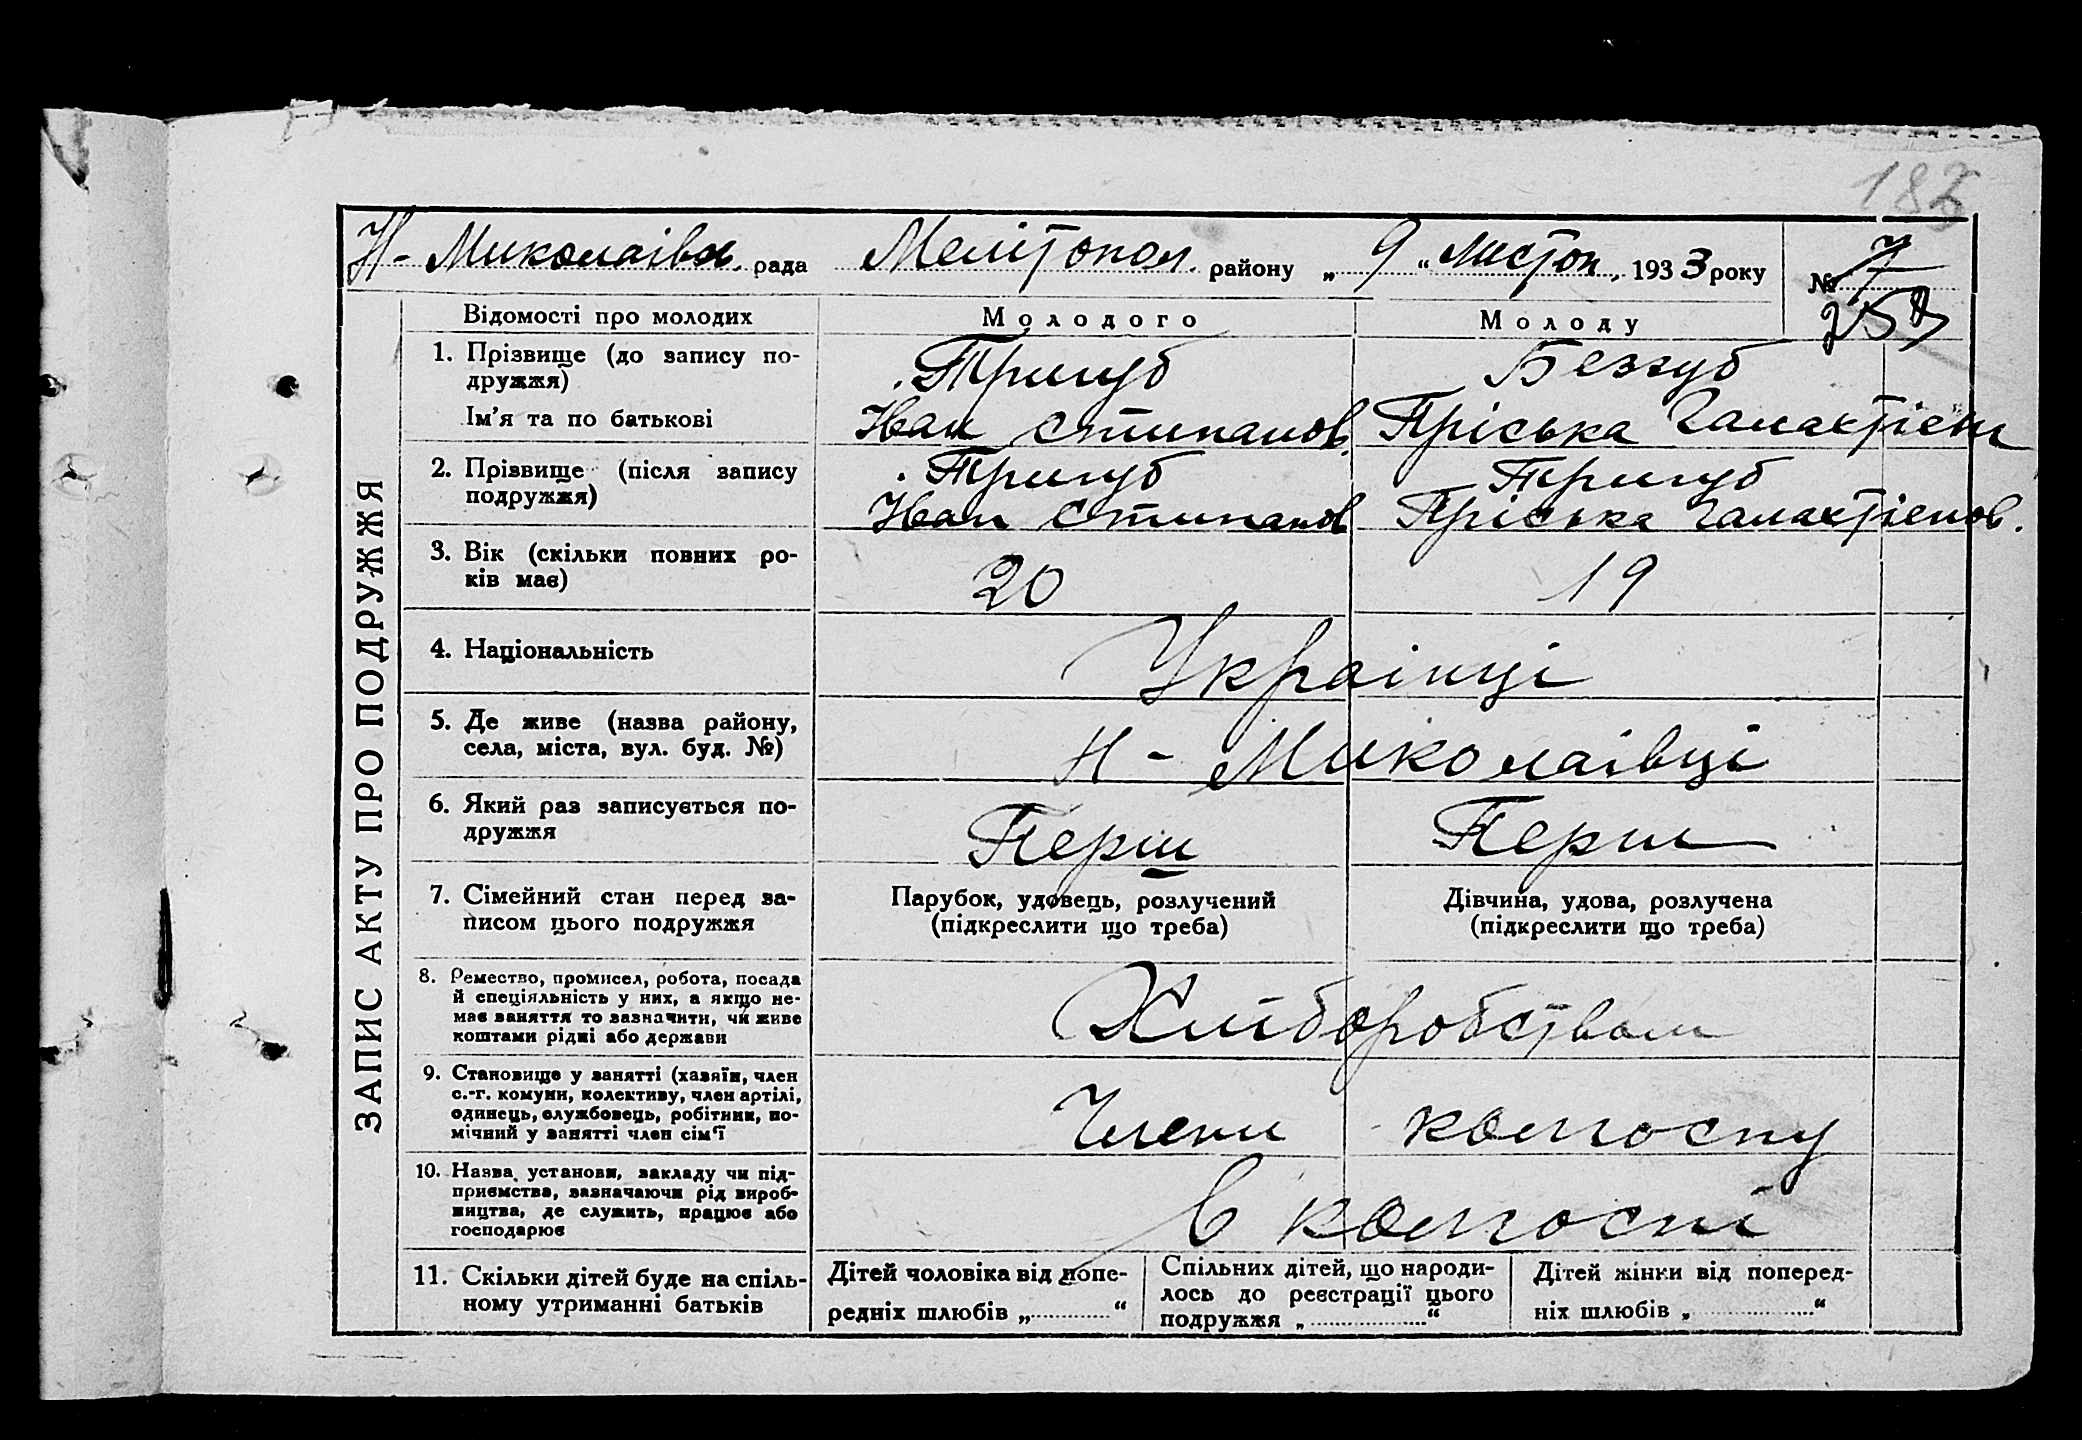 182
Н-Миколаівск. рада Мелітопол. району „9“ листоп. 1933 року № 7
Відомості про молодих
Молодого
Молоду
ЗАПИС АКТУ ПРО ПОДРУЖЖЯ
1. Прізвище (до запису по-
дружжя)
Ім'я та по батькові
Тригуб
Иван Стипанов.
Беззуб
Пріська Галактіен
2. Прізвище (після запису
подружжя)
Тригуб
Иван Стипанов
Тригуб
Пріська Галактіенов.
3. Вік (скільки повних ро-
ків має)
20
19
4. Національність
Украінці
5. Де живе (назва району,
села, міста, вул. буд. №)
Н-Миколаівці
6. Який раз записується по-
дружжя
Перш
Перш
7. Сімейний стан перед за-
писом цього подружжя
Парубок, удовець, розлучений
(підкреслити що треба)
Дівчина, удова, розлучена
(підкреслити що треба)
8. Ремество, промисел, робота, посада
й спеціяльність у них, а якщо не-
має заняття то зазначити, чи живе
коштами рідні або держави
Хліборобством
9. Становище у занятті (хазяїн, член
с.-г. комуни, колективу, член артілі,
одинець, службовець, робітник, по-
мічний у занятті член сім'ї
Члени колгоспу
10. Назва установи, закладу чи під-
приємства, зазначаючи рід вироб-
ництва, де служить, працює або
господарює
в колгоспі
11. Скільки дітей буде на спіль-
ному утриманні батьків
Дітей чоловіка від попе-
редніх шлюбів „............“
Спільних дітей, що народи-
лось до реєстрації цього
подружжя „............“
Дітей жінки від поперед-
ніх шлюбів „............“